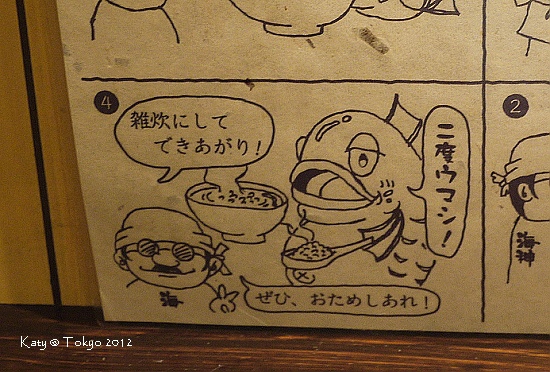 ④
雑炊にして
できあがり！
二度ウマシ！
海
ぜひ、おためしあれ！
②
海神
Katy @ Tokyo 2012